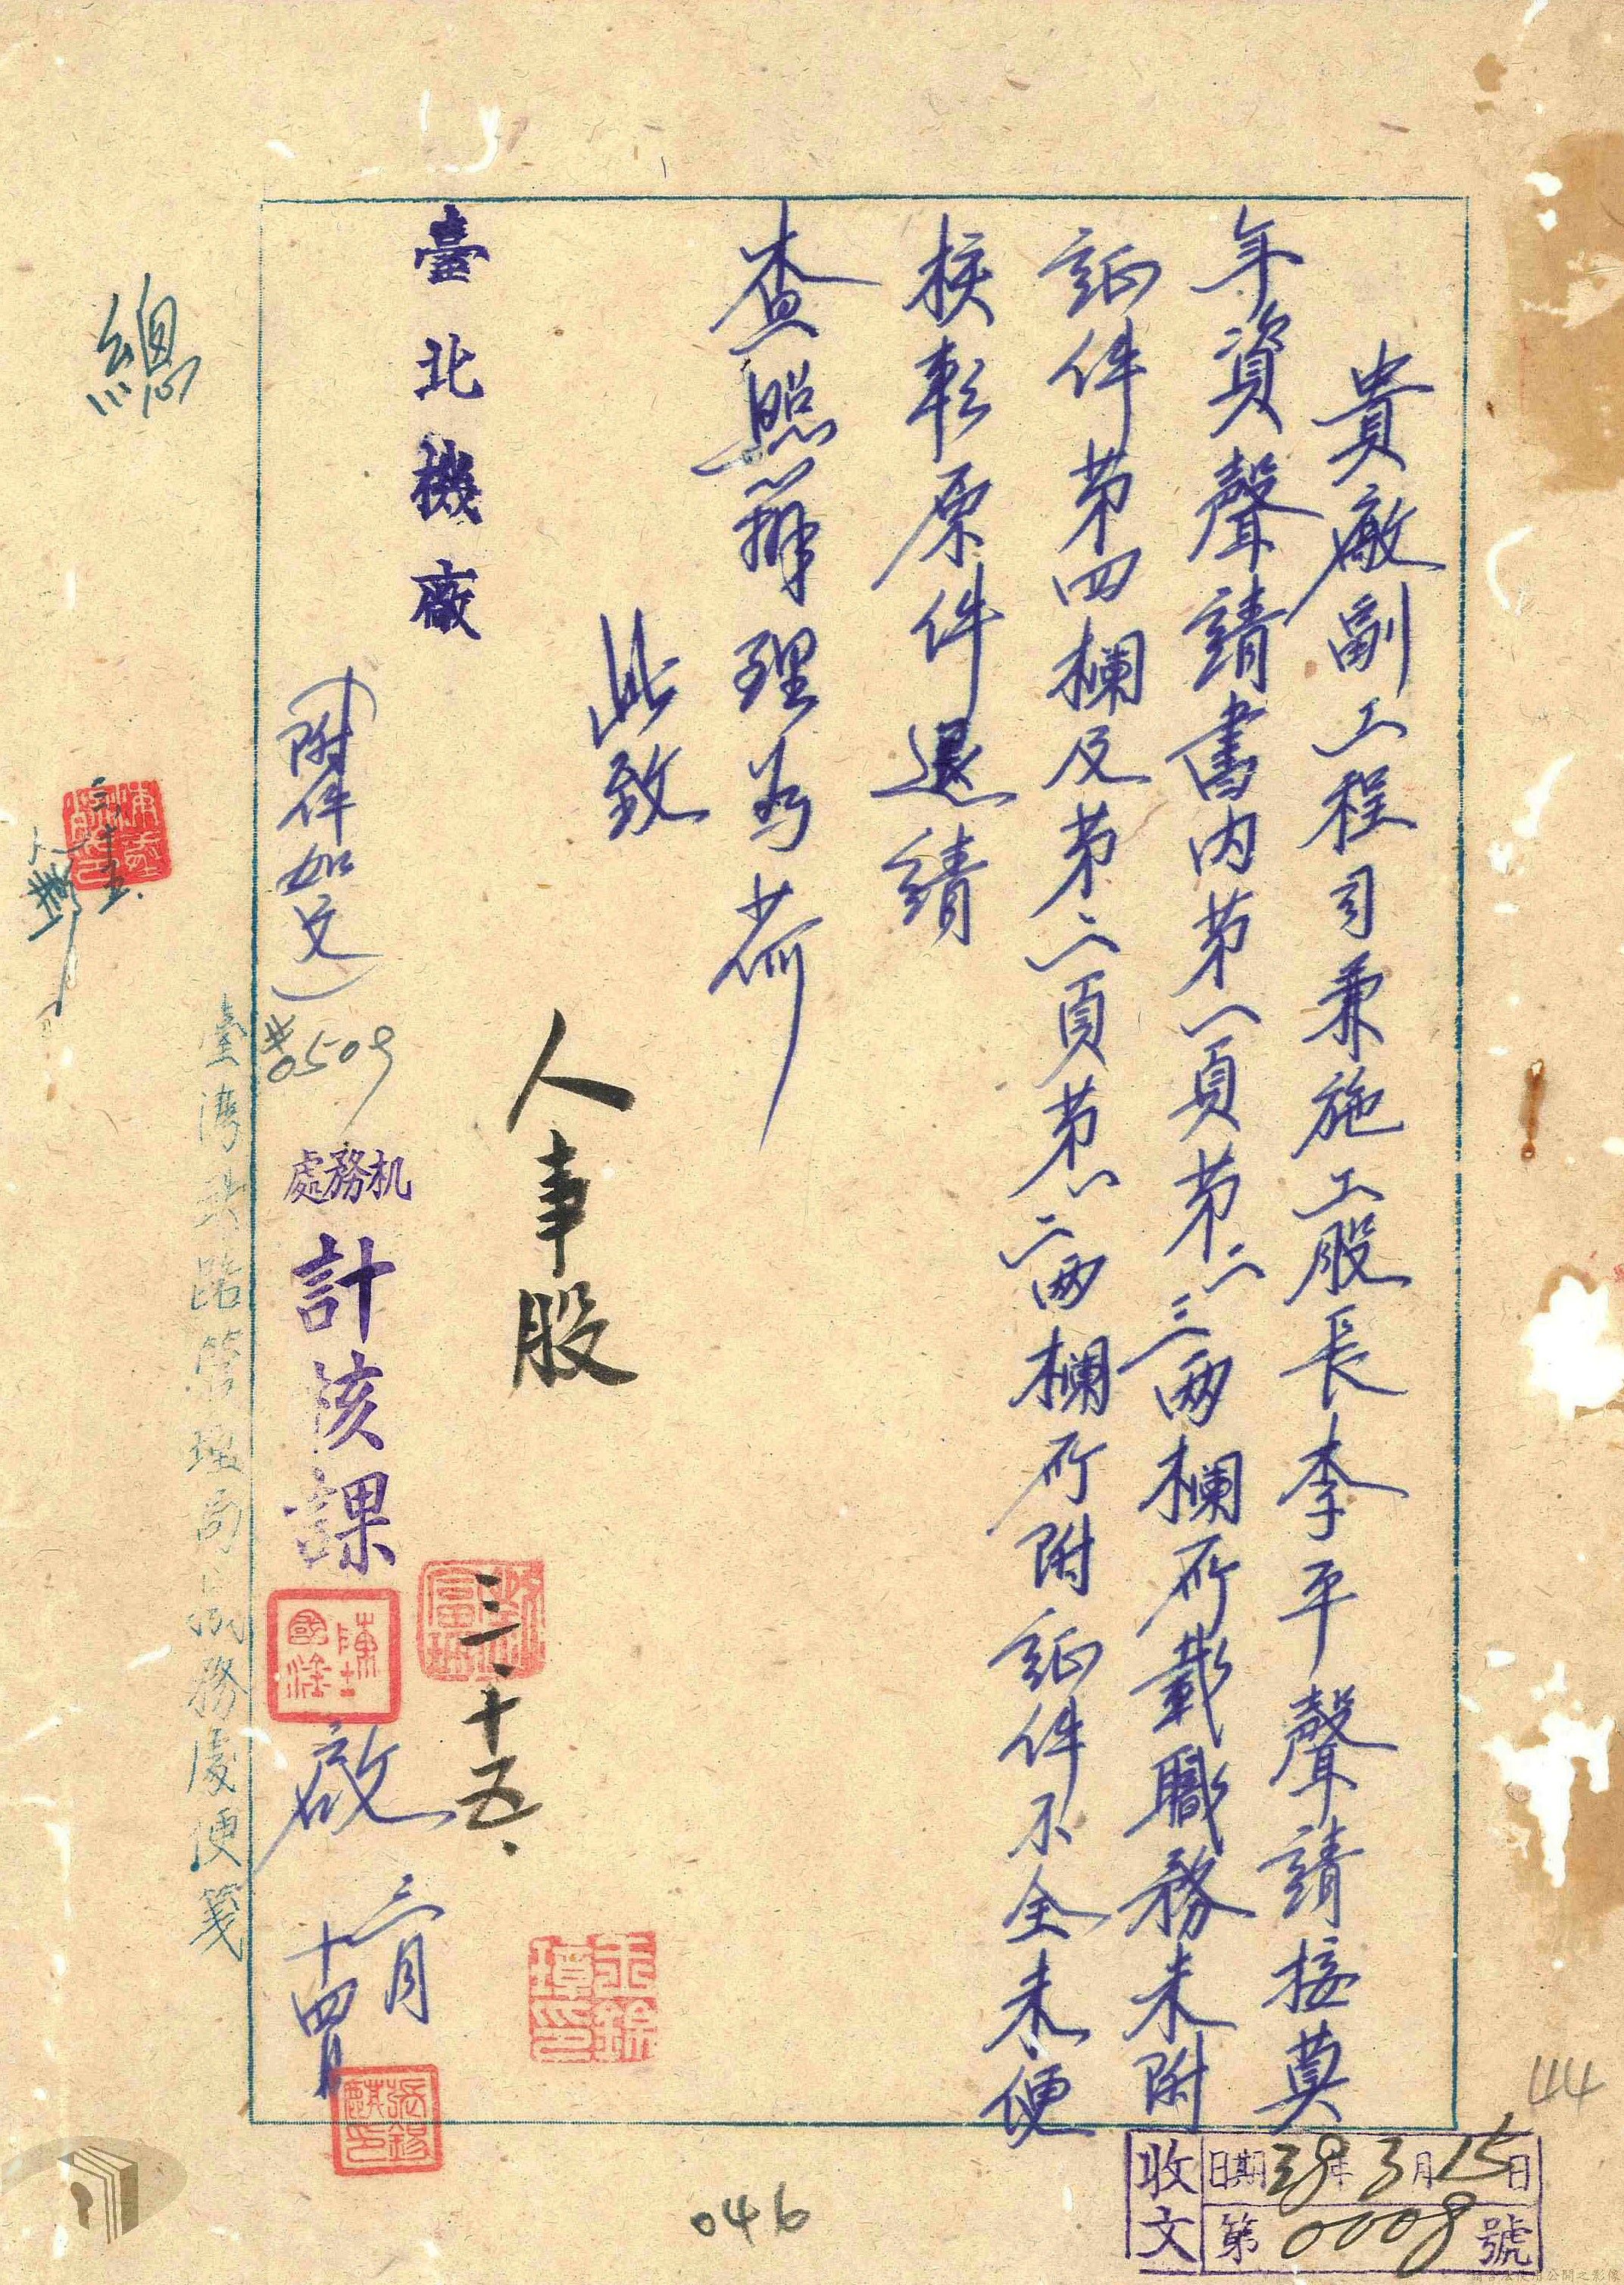 貴廠副工程司兼施工股長李平聲請接奠
年資聲請書內第一頁第二三兩欄所載職務未附
証件第四欄及第二頁第一二兩欄所附証件不全未便
核轉原件退請
查照辦理為荷
此致
臺北機廠
(附件如文)
#0509
人事股
三十五、
机務處
計核課
啟
三月
十四日
臺灣鐵路管理局機務處便箋
總
三、十五、
收文
日期38年3月15日
第0008號
046
44